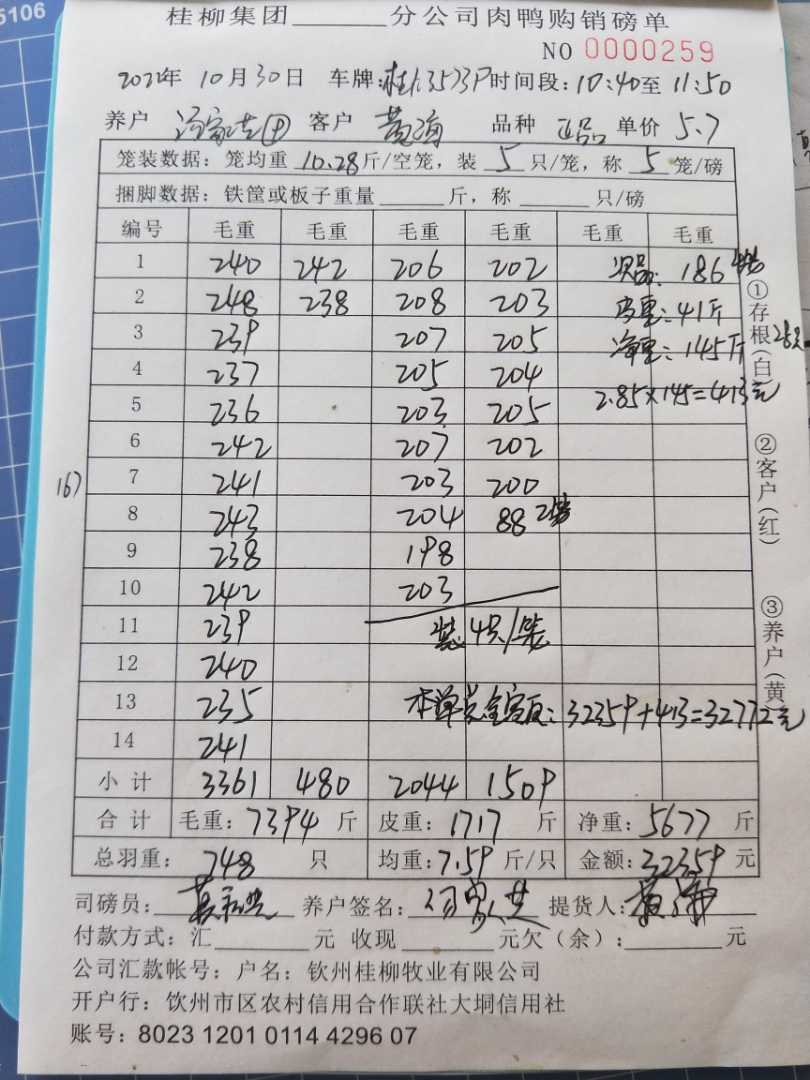 5106
桂柳集团______分公司肉鸭购销磅单
NO 0000259
2022年 10月30日 车牌:桂L3533P 时间段:10:40至 11:50
养户 客户 黄海 品种 正品 单价 5.7
笼装数据: 笼均重 10.28 斤/空笼, 装 5 只/笼, 称 5 笼/磅
捆脚数据: 铁筐或板子重量______斤, 称______只/磅
编号 毛重 毛重 毛重 毛重 毛重 毛重
1 240 242 206 202 次品: 186
2 248 238 208 203 皮重: 41斤
3 239 207 205 净重: 145斤 28只
4 237 205 204
5 236 203 205 2.85×145=413元
6 242 207 202
167
7 241 203 200
8 243 204 88 2笼
9 238 198
10 242 203
11 239 装4只/笼
12 240
13 235 本单总金额: 32359+413=32772元
14 241
小计 3361 480 2044 1509
合计 毛重: 7394 斤 皮重: 1717 斤 净重: 5677 斤
总羽重: 748 只 均重: 7.59 斤/只 金额: 32359 元
司磅员: 养户签名: 提货人: 黄海
付款方式: 汇______元 收现______元欠(余):______元
公司汇款帐号: 户名: 钦州桂柳牧业有限公司
开户行: 饮州市区农村信用合作联社大垌信用社
账号: 8023 1201 0114 4296 07
①存根(白)
②客户(红)
③养户(黄